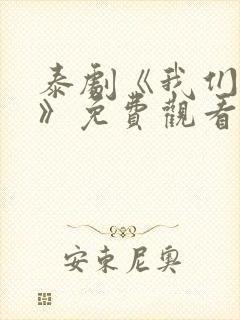 泰劇《我们
》免費觀看
安東尼奧